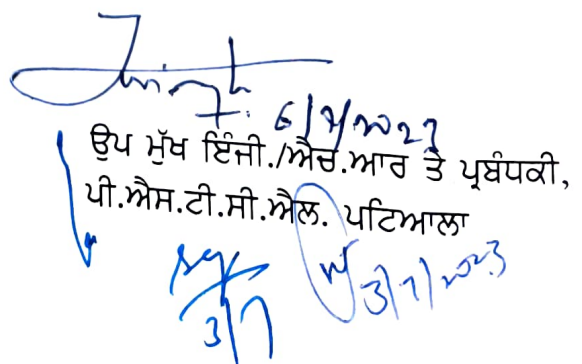 6/7/2023
ਉਪ ਮੁੱਖ ਇੰਜੀ./ਐਚ.ਆਰ ਤੇ ਪ੍ਰਬੰਧਕੀ,
ਪੀ.ਐਸ.ਟੀ.ਸੀ.ਐਲ. ਪਟਿਆਲਾ
3/7/2023
3/7